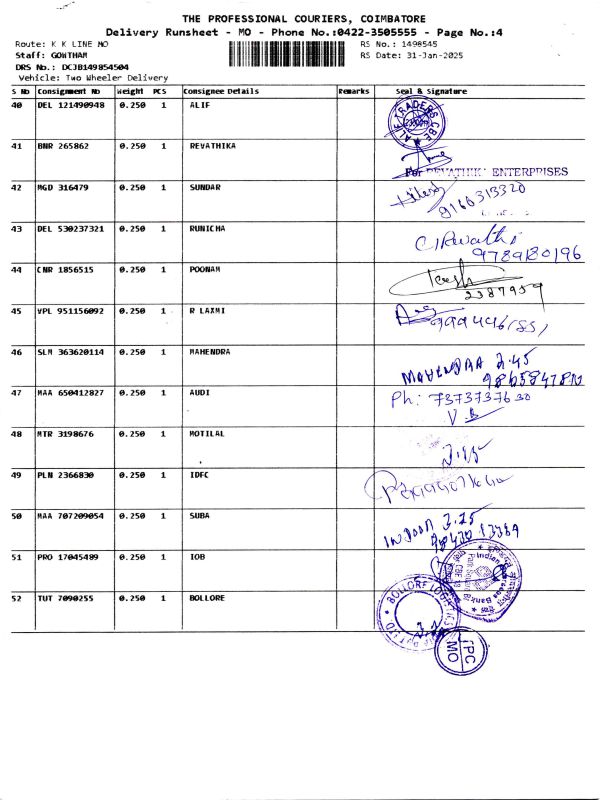 THE PROFESSIONAL COURIERS, COIMBATORE
Delivery Runsheet - MO - Phone No.:0422-3505555 - Page No.:4
Route: K K LINE MO RS No.: 1498545
Staff: GOWTHAM RS Date: 31-Jan-2025
DRS No.: DCJB149854504
Vehicle: Two Wheeler Delivery
S No Consignment No Weight PCS Consignee Details Remarks Seal & Signature
40 DEL 121490948 0.250 1 ALIF
TRADERS CBE
41 BNR 265862 0.250 1 REVATHIKA
For REVATHIK ENTERPRISES
42 MGD 316479 0.250 1 SUNDAR
9160313320
43 DEL 530237321 0.250 1 RUNICHA
9789180196
44 CNR 1856515 0.250 1 POONAM
2387959
45 VPL 951156092 0.250 1 R LAXMI
46 SLM 363620114 0.250 1 MAHENDRA
MAHENDRA 2.45
47 MAA 650412827 0.250 1 AUDI
Ph: 7373737630
48 MTR 3198676 0.250 1 MOTILAL
49 PLN 2366830 0.250 1 IDFC
50 MAA 707209054 0.250 1 SUBA
51 PRO 17045489 0.250 1 IOB
Indian Overseas Bank
52 TUT 7090255 0.250 1 BOLLORE
BOLLORE LOGISTICS
JPC
MO